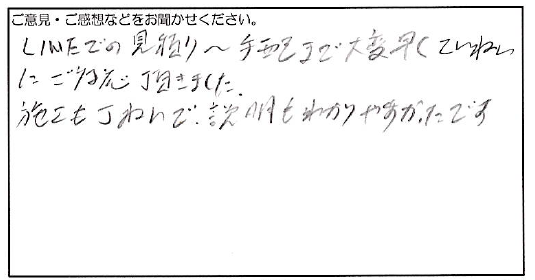 ご意見・ご感想などをお聞かせください。
LINEでの見積り〜手配まで大変早くていねい
にご対応頂きました。
施工も丁ねいで、説明もわかりやすかったです